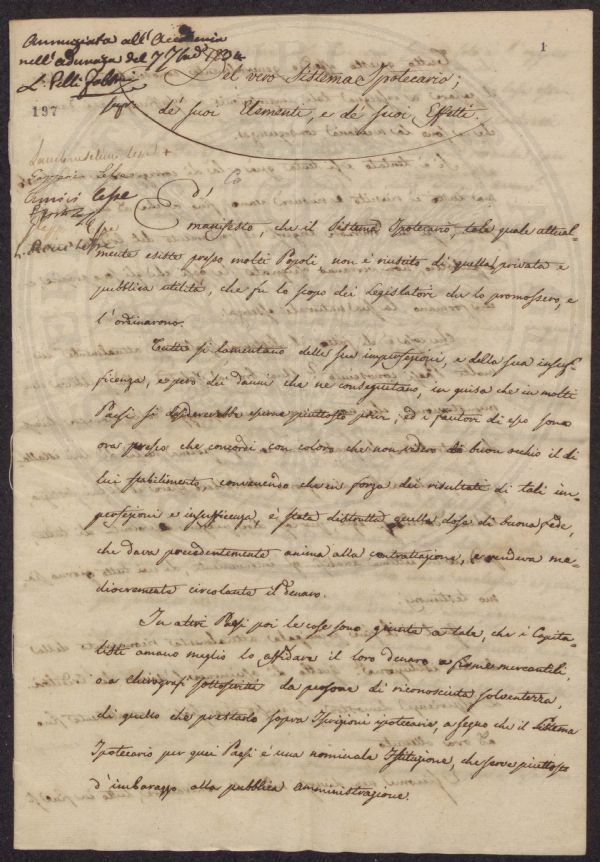 Annunziata all'Accademia
nell'adunanza del 7 7bre 1834
L. Pelli Fabbroni
1
197
Del vero Sistema Ipotecario;
de' suoi Elementi, e de' suoi Effetti.
Amici lesse
È
manifesto, che il Sistema Ipotecario, tale quale attual-
mente esiste presso molti Popoli non è riuscito di quella privata e
pubblica utilità, che fu lo scopo dei Legislatori che lo promossero, e
l'ordinarono.
Tutti si lamentano delle sue imperfezioni, e della sua insuf-
ficenza, e però dei danni che ne conseguitano, in guisa che in molti
Paesi si desidererebbe piuttosto ; ed i fautori di esso sono
ora presso che concordi con coloro che non videro di buon occhio il di
lui stabilimento, convenendo che in forza dei risultati di tali im-
perfezioni e insufficenza, è stata distrutta quella dose di buona fede,
che dava precedentemente anima alla contrattazione, e rendeva me-
diocremente circolante il denaro.
In altri Paesi poi le cose sono giunte a tale, che i Capita-
listi amano meglio lo affidare il loro denaro a firme mercantili,
o a chirografi sottoscritti da persone di riconosciuta solventezza,
di quello che prestarlo sopra Iscrizioni ipotecarie, a segno che il Sistema
Ipotecario per quei Paesi è una nominale Istituzione, che serve piuttosto
d'imbarazzo alla pubblica amministrazione.